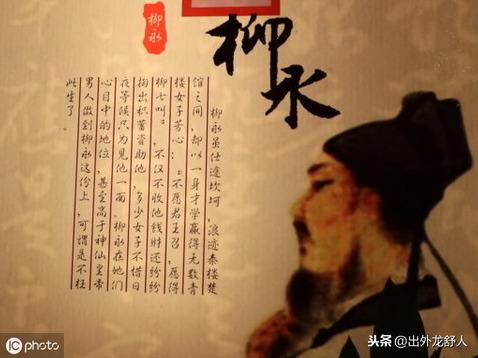 柳永
柳永
柳永虽仕途坎坷，浪迹秦楼楚
馆之间，却以一身才学赢得无数青
楼女子芳心：“不愿君王召，愿得
柳七叫”。不仅不收他钱财还纷纷
掏出积蓄资助他，多少女子不惜日
夜等候只为见他一面。柳永在她们
心目中的地位，甚至高于神仙皇帝
男人做到柳永这份上，可谓是不枉
此生了。
iC photo
头条 @出外龙舒人